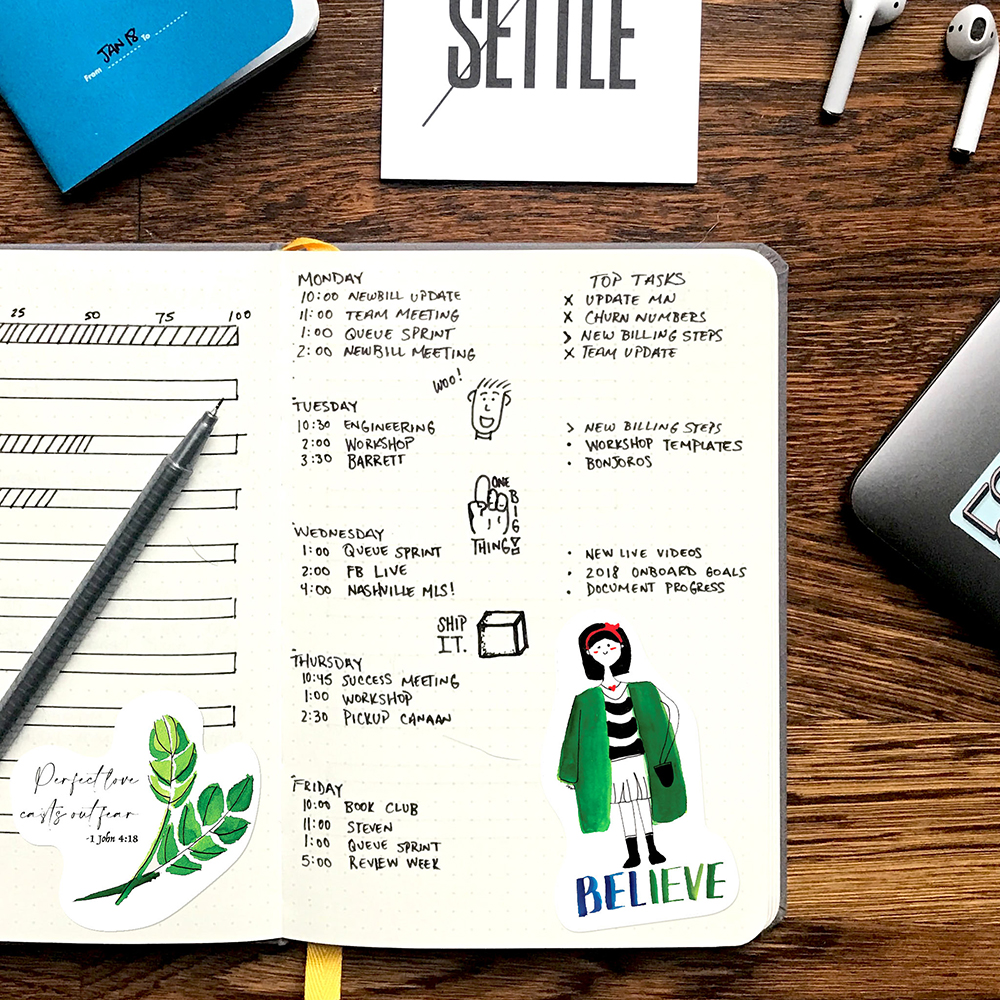 JAN 18
From To
SETTLE
25 50 75 100
MONDAY
10:00 NEWBILL UPDATE
11:00 TEAM MEETING
1:00 QUEUE SPRINT
2:00 NEWBILL MEETING
WOO!
TUESDAY
10:30 ENGINEERING
2:00 WORKSHOP
3:30 BARRETT
ONE
BIG
THING
WEDNESDAY
1:00 QUEUE SPRINT
2:00 FB LIVE
4:00 NASHVILLE MLS!
SHIP
IT.
THURSDAY
10:45 SUCCESS MEETING
1:00 WORKSHOP
2:30 PICKUP CANAAN
FRIDAY
10:00 BOOK CLUB
11:00 STEVEN
1:00 QUEUE SPRINT
5:00 REVIEW WEEK
TOP TASKS
X UPDATE MN
X CHURN NUMBERS
> NEW BILLING STEPS
X TEAM UPDATE
> NEW BILLING STEPS
• WORKSHOP TEMPLATES
• BONJOROS
• NEW LIVE VIDEOS
• 2018 ONBOARD GOALS
• DOCUMENT PROGRESS
Perfect love
casts out fear
-1 John 4:18
BELIEVE